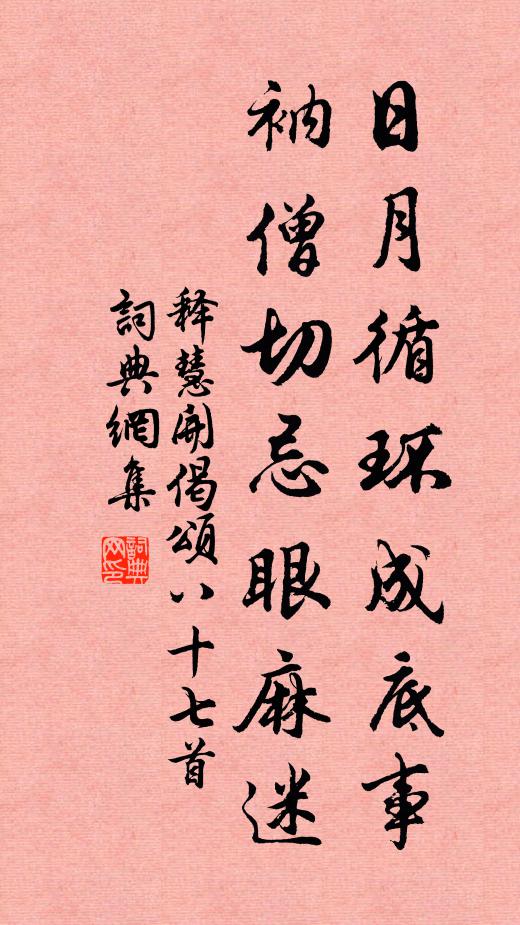 日月循环成底事
衲僧切忌眼麻迷
释慧開偈頌八十七首
詞典網集
詞典網印